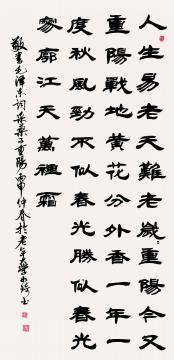 人生易老天難老歲々重陽今又
重陽戰地黃花分外香一年一
度秋風勁不似春光勝似春光
寥廓江天萬裡霜
敬書毛澤東詞采桑子重陽 丙申仲春於老年大學